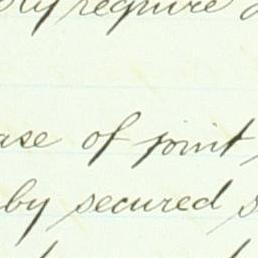 require
ase of joint
by secured s